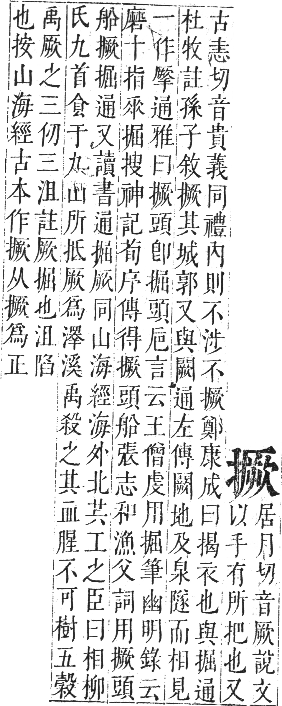 撅
居月切音厥說文
以手有所把也又
古恚切音貴義同禮內則不涉不撅鄭康成曰揭衣也與掘通
杜牧註孫子敘撅其城郭又與闕通左傳闕地及泉隧而相見
一作通雅曰撅頭卽掘頭巵言云王僧虔用掘筆幽明錄云
磨十指承掘搜神記荀序傳得撅頭船張志和漁父詞用撅頭
船撅掘通又讀書通掘厥同山海經海外北共工之臣曰相柳
氏九首食于九山所抵厥爲澤溪禹殺之其血腥不可樹五穀
禹厥之三仞三沮註厥掘也沮陷
也按山海經古本作撅从撅爲正